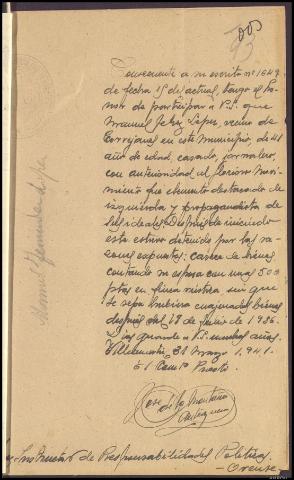 Consecuente a su escrito nº 1649
de fecha 15 del actual, tengo el ho-
nor de participar a V.S. que
Manuel López, vecino de
en este Municipio, de 41
año de edad, casado, jornalero,
con anterioridad al glorioso movi-
miento fue elemento destacado de
izquierda y propagandista de
sus ideales. Después de iniciado
este estuvo detenido por las ra-
zones expuestas; carece de bienes
contando su esposa con unas 500
ptas en finca rústica sin que
se sepa hubiera enajenado bienes
después del 18 de Julio de 1936.
Dios guarde a V.S. muchos años.
31 Marzo 1.941.
El Comte Puesto
José
Instructor de Responsabilidades Políticas.
- Orense.